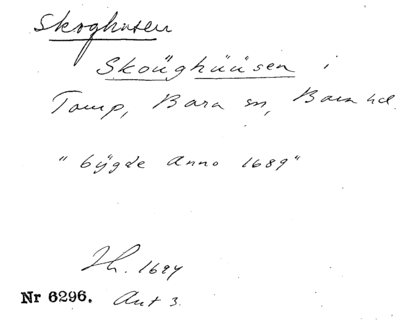 Skoghusen
Skoüghüüsen i
Torup, Bara sn, Bara hd.
"bÿgde Anno 1689"
Jb. 1694
Nr 6296. Ant 3.